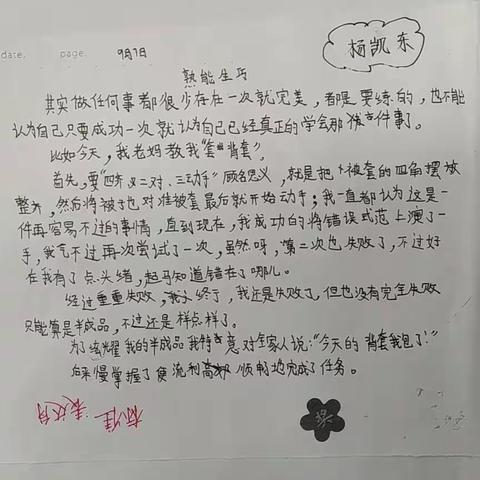 date.
page.
9月7日
杨凯东
熟能生巧
其实做任何事都很少存在一次就完美，都是要练的，也不能
认为自己只要成功一次就认为自己已经真正的学会那件事了。
比如今天，我老妈教我“套背套”。
首先，要“四齐 二对、三动手”顾名思义，就是把被套的四角摆放
整齐，然后将被子也对准被套最后就开始动手；我一直都认为这是一
件再容易不过的事情，直到现在，我成功的将错误式范上演了一
手，我气不过再次尝试了一次，虽然呀，第二次也失败了，不过好
在我有了点头绪，起马知道错在了哪儿。
经过重重失败，终于，我还是失败了，但也没有完全失败
只能算是半成品，不过还是样点样了。
为了炫耀我的半成品我特意对全家人说：“今天的背套我包了！”
慢掌握了便流利 顺利地完成了任务。